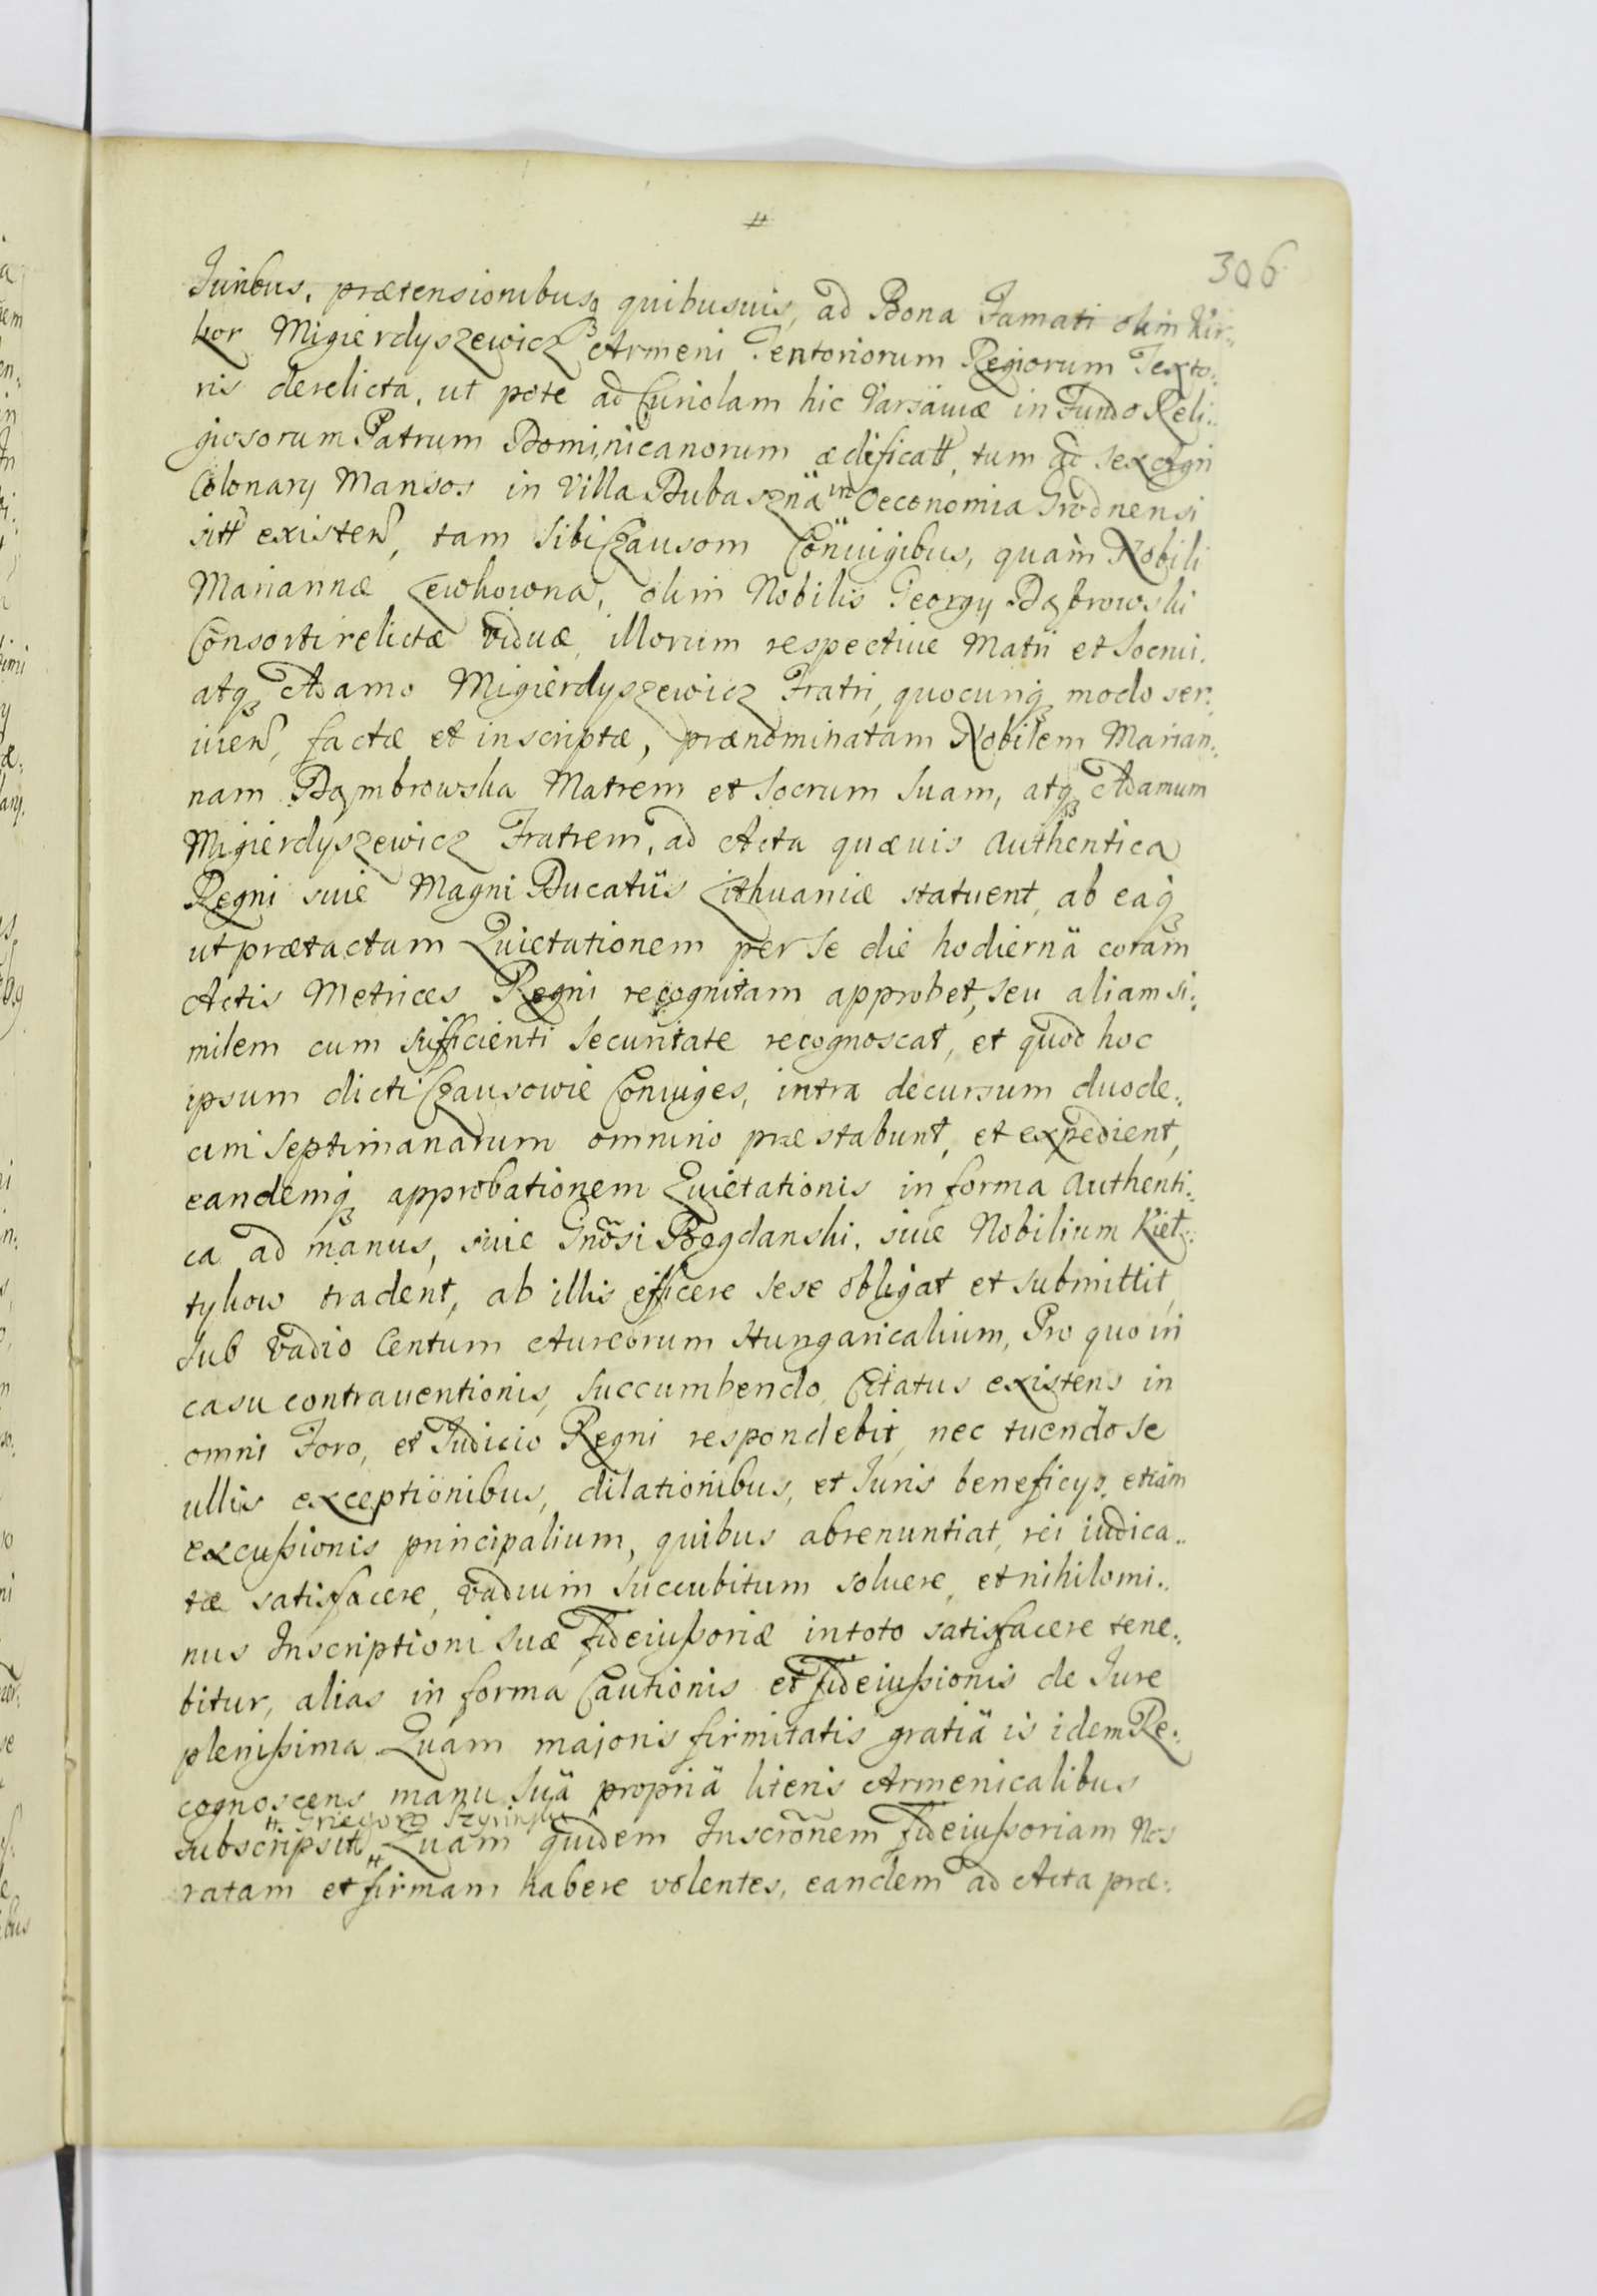 306
Juribus, prætensionibusq quibusuis, ad Bona Famati olim Kir:,
kor Migierdyszewicz Armeni Tentoriorum Regiorum Texto:,
ris derelicta, ut pote ad Curiolam hic Varsauiæ in Fundo Reli:,
giosorum Patrum Dominicanorum ædificatt, tum ad sex Agri
Colonary Mansos in Villa Dubaszna in Oeconomia Grodnensi
sitt existen, tam sibi Czausom Coniuigibus, quam Nobili
Mariannæ Lewkowna, olim Nobilis Georgy Dąbrowski
Consorti relictæ viduæ, illorum respectiue Matri et Socrui,
atq Adamo Migierdyszewicz Fratri, quocunq modo ser:,
uien, factæ et inscriptæ, prænominatam Nobilem Marian:,
nam Dąmbrowska Matrem et Socrum suam, atq Adamum
Migierdyszewicz Fratrem, ad Acta quæuis Authentica
Regni siue Magni Ducatûs Lithuaniæ statuent, ab eaq
ut prætactam Quietationem per se die hodiernä coram
Actis Metrices Regni recognitam approbet, seu aliam si:,
milem cum sufficienti securitate recognoscat, et quod hoc
ipsum dicti Czausowie Coniuges, intra decursum duode:,
cim septimanarum omnino præstabunt, et expedient,
eandemq approbationem Quietationis in forma Authenti:,
ca ad manus, siue Gnõsi Bogdanski, siue Nobilium Kiet:,
tykow tradent, ab illis efficere sese obligat et submittit,
sub vadio Centum Aureorum Hungaricalium, Pro quo in
casu contrauentionis, succumbendo, Citatus existens in
omni Foro, et Judicio Regni respondebit, nec tuendo se
ullis exceptionibus, dilationibus, et Juris beneficys, etiam
excußionis principalium, quibus abrenuntiat, rei iudica:,
tæ satisfacere, vadium succubitum soluere, et nihilomi:,
nus Inscriptioni suæ fideiußoriæ in toto satisfacere tene:,
bitur, alias in forma Cautionis et fideiußionis de Jure
plenißima Quam majoris firmitatis gratiä is idem Re:,
cognoscens manu suä propriä literis Armenicalibus
# Griegorz
subscripsit # Quam quidem Inscrõnem fideiußoriam Nos
ratam et firmam habere volentes, eandem ad Acta præ:,